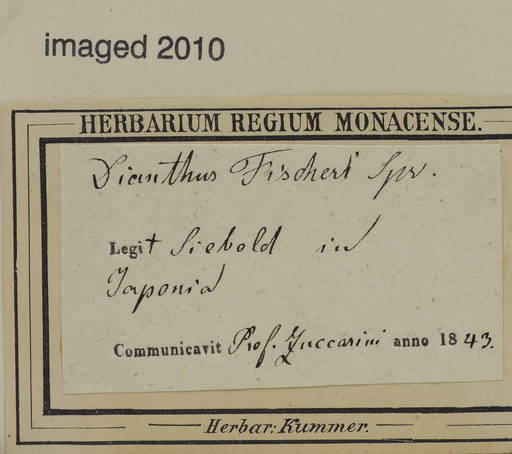 imaged 2010
HERBARIUM REGIUM MONACENSE.
Dianthus Fischeri Spr.
Legit Siebold in
Japonia
Communicavit Prof. Zuccarini anno 1843.
Herbar: Kummer.